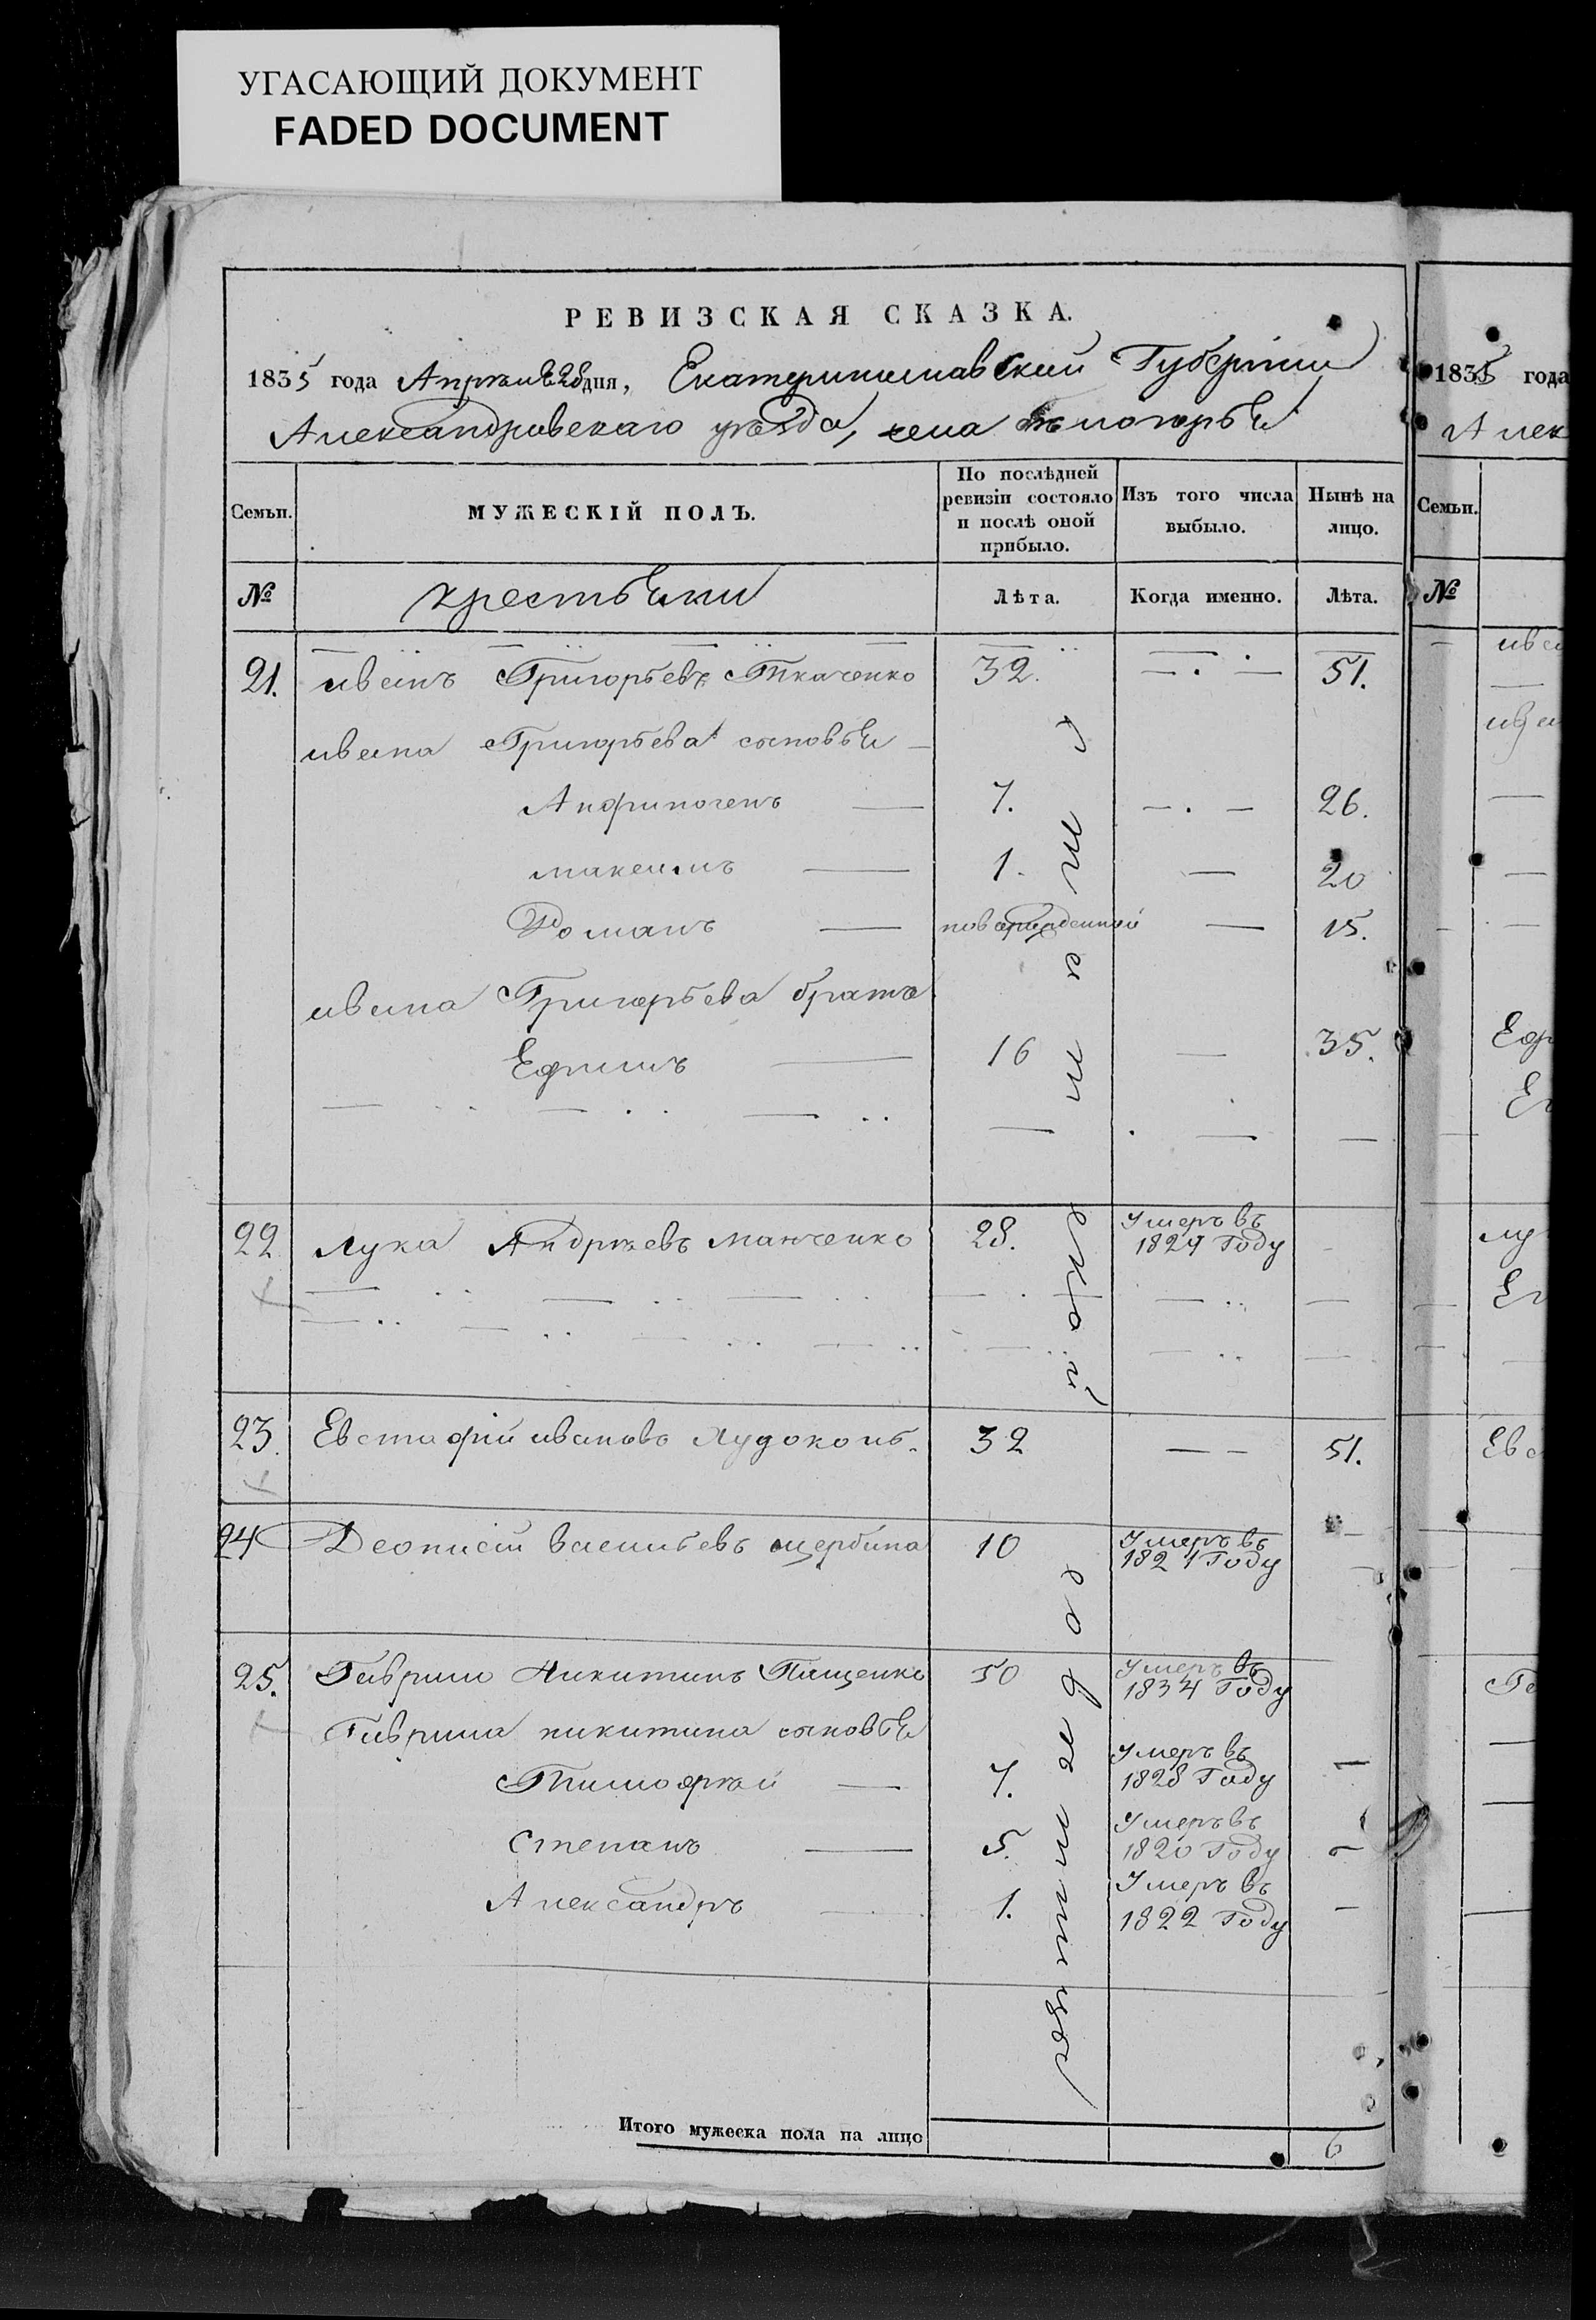 УГАСАЮЩИЙ ДОКУМЕНТ
FADED DOCUMENT
РЕВИЗСКАЯ СКАЗКА.
1835 года Апрѣля 28 дня, Екатеринославской Губерніи
Александровскаго уѣзда, села Бѣлогорья
Семьи. МУЖЕСКІЙ ПОЛЪ. По послѣдней ревизіи состояло и послѣ оной прибыло. Изъ того числа выбыло. Нынѣ на лицо.
№ крестьяни Лѣта. Когда именно. Лѣта.
21. иванъ Григорьевъ Ткаченко 32. 51.
ивана Григорьева сыновья
Анфиногенъ 7. 26.
максимъ 1. 20
Романъ новорожденный 15.
ивана Григорьева братъ
Ефимъ 16 35.
22 Лука Андрѣевъ Манченко 28. Умеръ въ
1824 Году
23. Евстафій ивановъ Лудоколъ. 32 51.
24 Деонисій васильевъ щербина 10 Умеръ въ
1821 Году
25. Гаврило Никитинъ Пащенко 50 Умеръ въ
1834 Году
Гаврила никитина сыновья
Тимофѣй 7. Умеръ въ
1828 Году
Степанъ 5. Умеръ въ
1820 Году
Александръ 1. Умеръ въ
1822 Году
Итого мужеска пола на лицо 6
1835 года
Алек
Семьи.
№
Еф
Евс